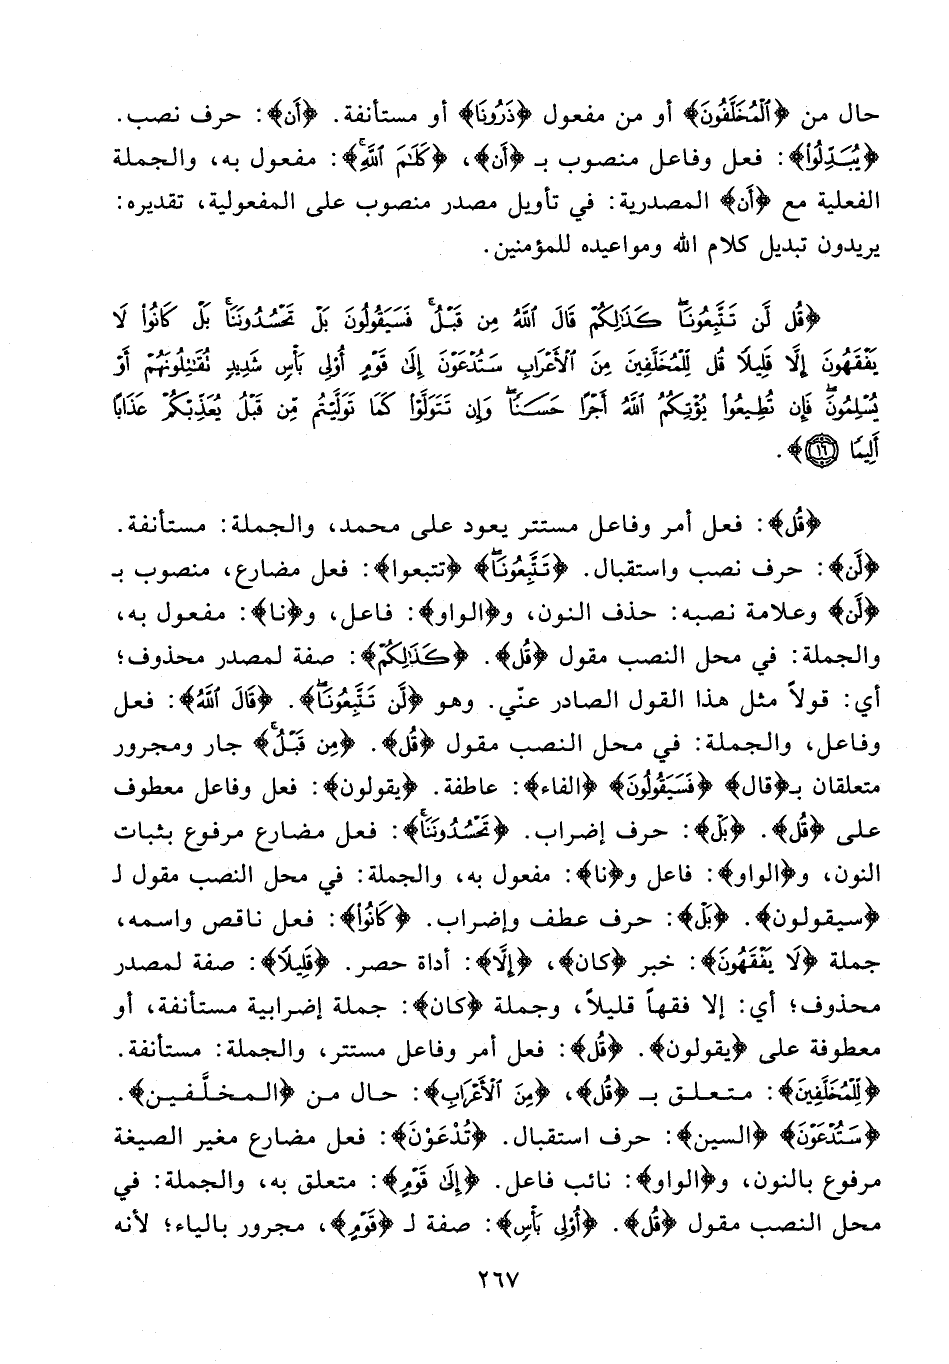 حال من ﴿ٱلْمُخَلَّفُونَ﴾ أو من مفعول ﴿ذَرُونَا﴾ أو مستأنفة. ﴿أَن﴾: حرف نصب.
﴿يُبَدِّلُوا۟﴾: فعل وفاعل منصوب بـ ﴿أَن﴾، ﴿كَلَٰمَ ٱللَّهِ ۚ﴾: مفعول به، والجملة
الفعلية مع ﴿أَن﴾ المصدرية: في تأويل مصدر منصوب على المفعولية، تقديره:
يريدون تبديل كلام الله ومواعيده للمؤمنين.
﴿قُل لَّن تَتَّبِعُونَا ۖ كَذَٰلِكُمْ قَالَ ٱللَّهُ مِن قَبْلُ ۖ فَسَيَقُولُونَ بَلْ تَحْسُدُونَنَا ۚ بَلْ كَانُوا۟ لَا
يَفْقَهُونَ إِلَّا قَلِيلًا قُل لِّلْمُخَلَّفِينَ مِنَ ٱلْأَعْرَابِ سَتُدْعَوْنَ إِلَىٰ قَوْمٍ أُو۟لِى بَأْسٍ شَدِيدٍ تُقَٰتِلُونَهُمْ أَوْ
يُسْلِمُونَ ۖ فَإِن تُطِيعُوا۟ يُؤْتِكُمُ ٱللَّهُ أَجْرًا حَسَنًا ۖ وَإِن تَتَوَلَّوْا۟ كَمَا تَوَلَّيْتُم مِّن قَبْلُ يُعَذِّبْكُمْ عَذَابًا
أَلِيمًا ١٦﴾.
﴿قُل﴾: فعل أمر وفاعل مستتر يعود على محمد، والجملة: مستأنفة.
﴿لَّن﴾: حرف نصب واستقبال. ﴿تَتَّبِعُونَا ۖ﴾ ﴿تتبعوا﴾: فعل مضارع، منصوب بـ
﴿لَّن﴾ وعلامة نصبه: حذف النون، و﴿الواو﴾: فاعل، و﴿نا﴾: مفعول به،
والجملة: في محل النصب مقول ﴿قُل﴾. ﴿كَذَٰلِكُمْ﴾: صفة لمصدر محذوف؛
أي: قولاً مثل هذا القول الصادر عنّي. وهو ﴿لَّن تَتَّبِعُونَا ۖ﴾. ﴿قَالَ ٱللَّهُ﴾: فعل
وفاعل، والجملة: في محل النصب مقول ﴿قُل﴾. ﴿مِن قَبْلُ ۖ﴾ جار ومجرور
متعلقان بـ﴿قال﴾ ﴿فَسَيَقُولُونَ﴾ ﴿الفاء﴾: عاطفة. ﴿يقولون﴾: فعل وفاعل معطوف
على ﴿قُل﴾. ﴿بَلْ﴾: حرف إضراب. ﴿تَحْسُدُونَنَا ۚ﴾: فعل مضارع مرفوع بثبات
النون، و﴿الواو﴾: فاعل و﴿نا﴾: مفعول به، والجملة: في محل النصب مقول لـ
﴿سيقولون﴾. ﴿بَلْ﴾: حرف عطف وإضراب. ﴿كَانُوا۟﴾: فعل ناقص واسمه،
جملة ﴿لَا يَفْقَهُونَ﴾: خبر ﴿كان﴾، ﴿إِلَّا﴾: أداة حصر. ﴿قَلِيلًا﴾: صفة لمصدر
محذوف؛ أي: إلا فقهاً قليلاً، وجملة ﴿كان﴾: جملة إضرابية مستأنفة، أو
معطوفة على ﴿يقولون﴾. ﴿قُل﴾: فعل أمر وفاعل مستتر، والجملة: مستأنفة.
﴿لِّلْمُخَلَّفِينَ﴾: متعلق بـ ﴿قُل﴾، ﴿مِنَ ٱلْأَعْرَابِ﴾: حال من ﴿المخلَّفين﴾.
﴿سَتُدْعَوْنَ﴾ ﴿السين﴾: حرف استقبال. ﴿تُدْعَوْنَ﴾: فعل مضارع مغير الصيغة
مرفوع بالنون، و﴿الواو﴾: نائب فاعل. ﴿إِلَىٰ قَوْمٍ﴾: متعلق به، والجملة: في
محل النصب مقول ﴿قُل﴾. ﴿أُو۟لِى بَأْسٍ﴾: صفة لـ ﴿قَوْمٍ﴾، مجرور بالياء؛ لأنه
٢٦٧